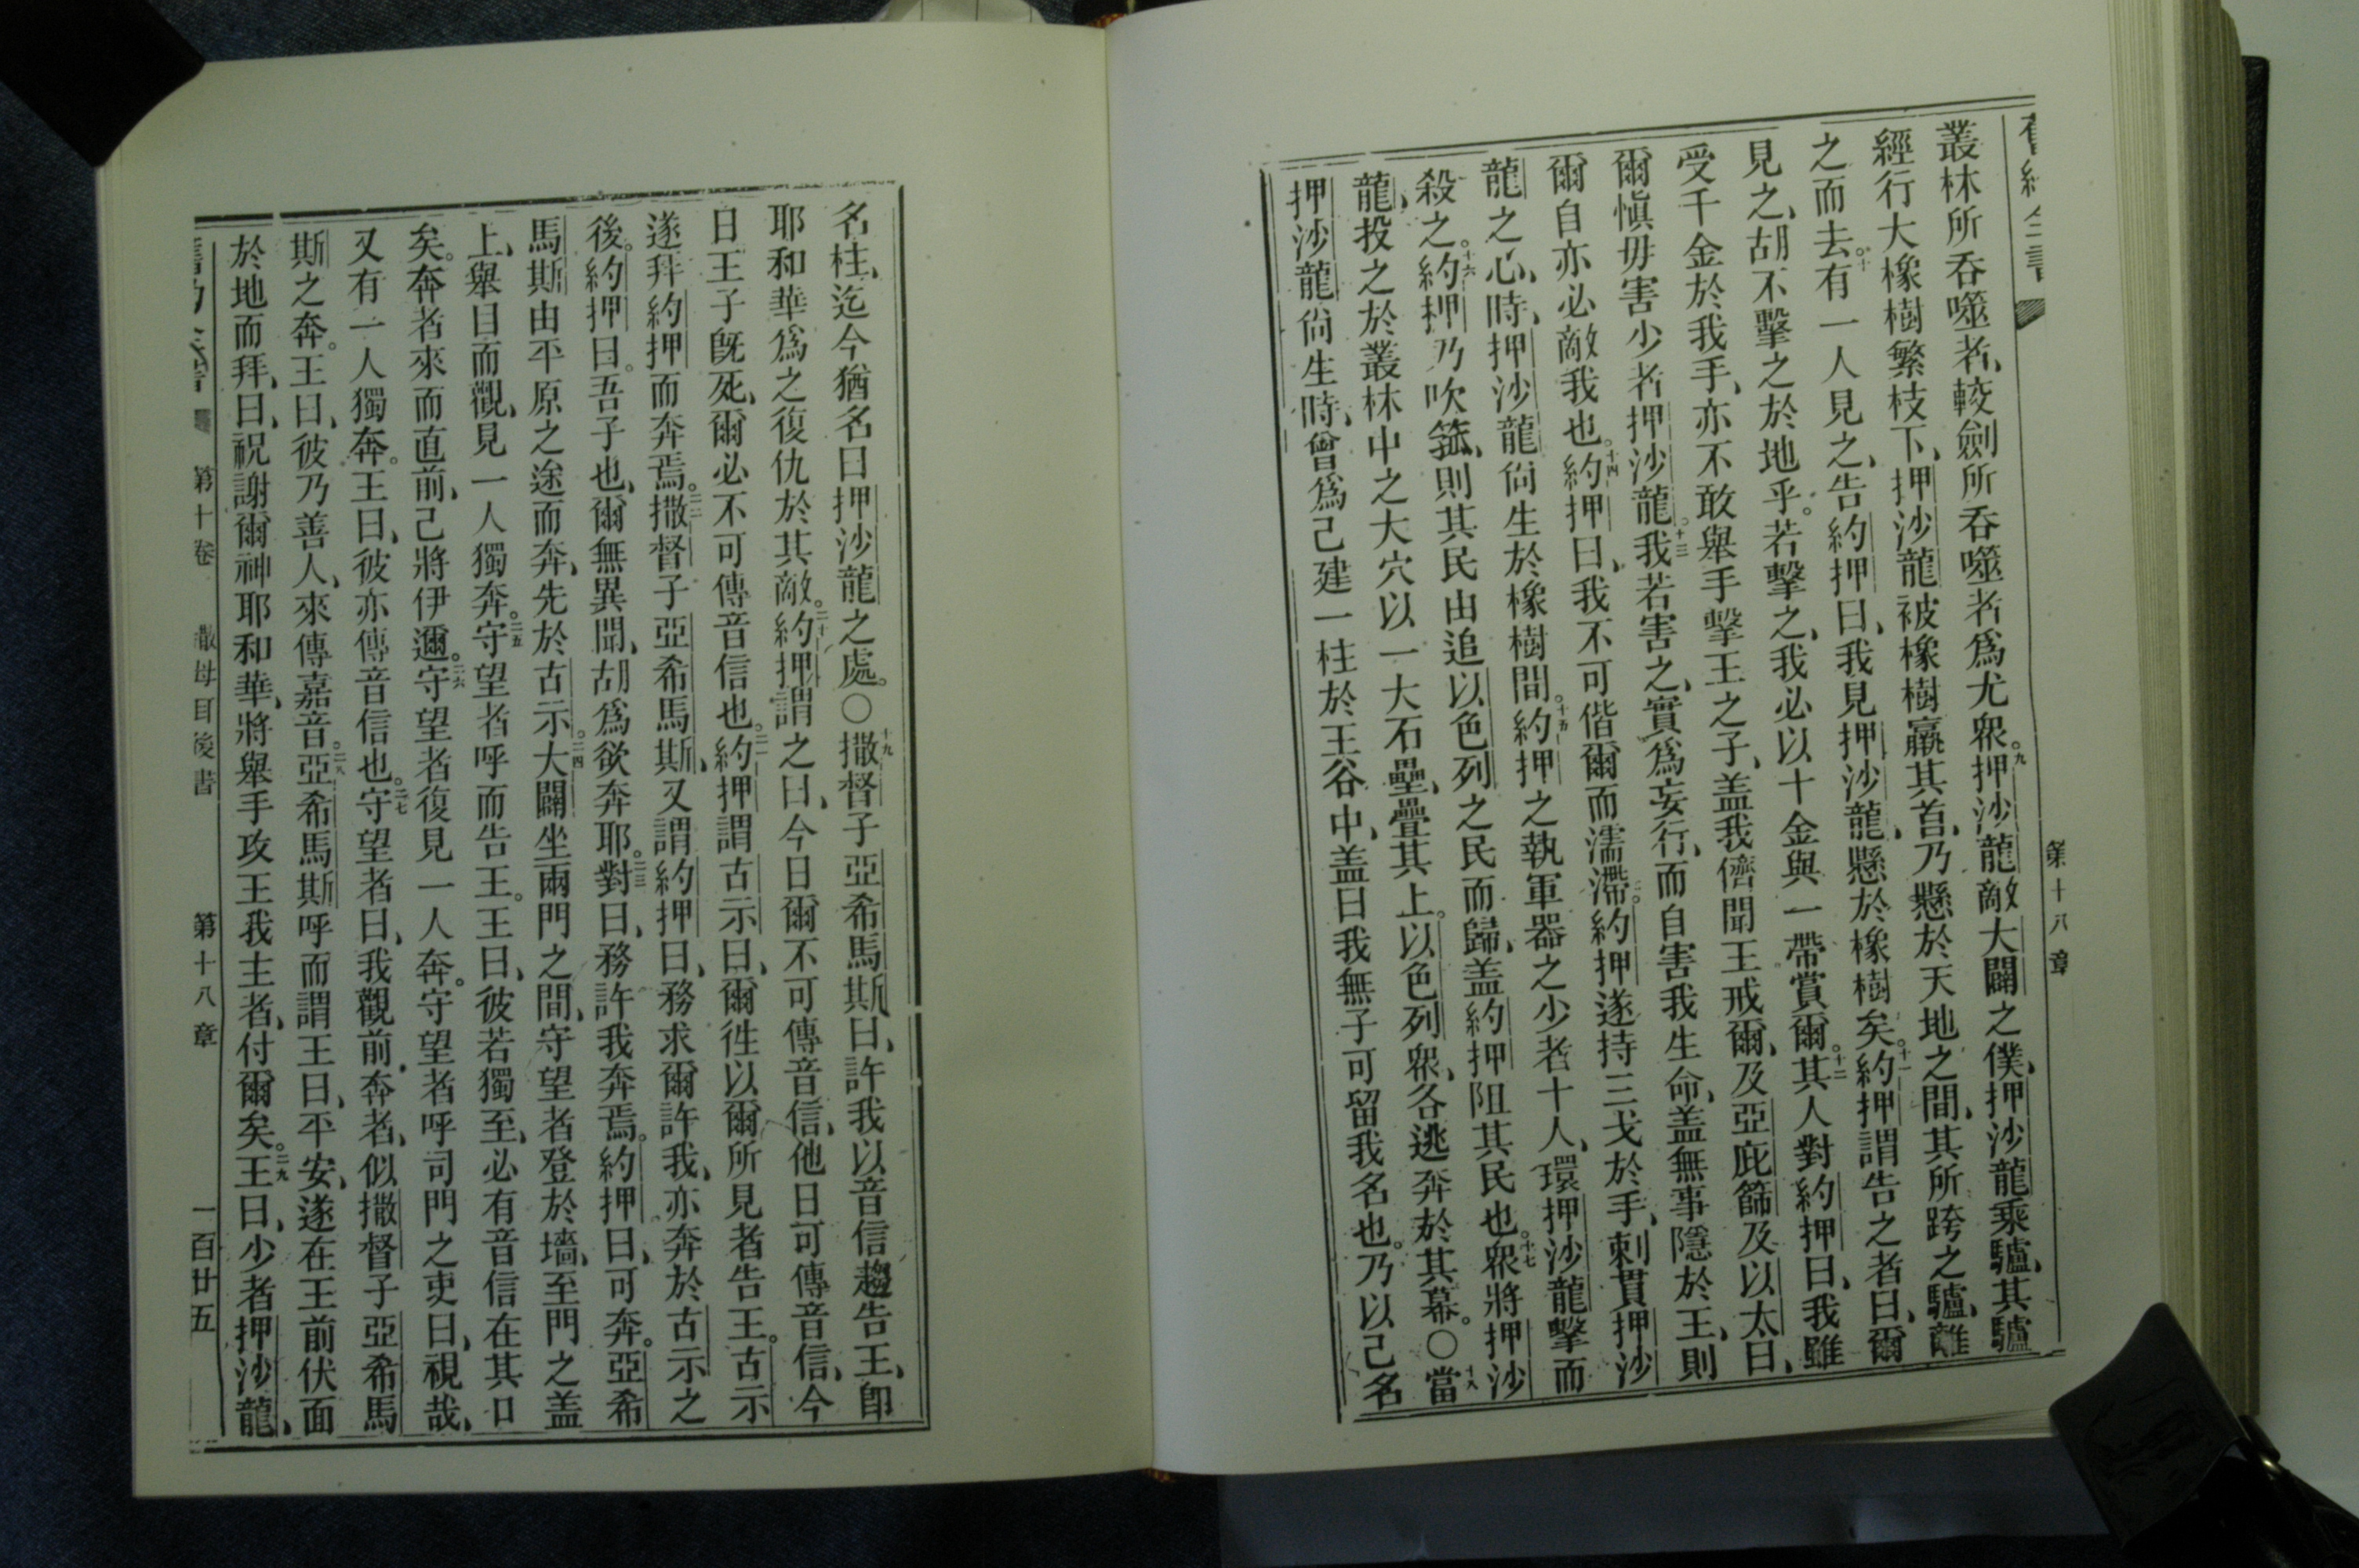 第十八章
叢林所吞噬者、較劍所吞噬者爲尤衆。九押沙龍敵大闢之僕、押沙龍乘驢、其驢
經行大橡樹繁枝下、押沙龍被橡樹羸其首、乃懸於天地之間、其所跨之驢、離
之而去。十有一人見之、告約押曰、我見押沙龍、懸於橡樹矣。十一約押謂告之者曰、爾
見之、胡不擊之於地乎。若擊之、我必以十金與一帶賞爾。十二其人對約押曰、我雖
受千金於我手、亦不敢舉手擊王之子、盖我儕聞王戒爾、及亞庇篩及以太曰、
爾愼毋害少者押沙龍。十三我若害之、實爲妄行、而自害我生命、盖無事隱於王、則
爾自亦必敵我也。十四約押曰、我不可偕爾而濡滯。約押遂持三戈於手、刺貫押沙
龍之心、時、押沙龍尙生於橡樹間。十五約押之執軍器之少者十人、環押沙龍擊而
殺之。十六約押乃吹箛、則其民由追以色列之民而歸、盖約押阻其民也。十七衆將押沙
龍、投之於叢林中之大穴以一大石壘、疊其上。以色列衆、各逃奔於其幕。〇十八當
押沙龍尙生時、曾爲己建一柱於王谷中、盖曰我無子可留我名也。乃以己名
名柱、迄今猶名曰押沙龍之處。〇十九撒督子亞希馬斯曰、許我以音信趨告王、卽
耶和華爲之復仇於其敵。二十約押謂之曰、今日爾不可傳音信、他日可傳音信、今
日王子旣死、爾必不可傳音信也。二一約押謂古示曰、爾徃以爾所見者告王。古示
遂拜約押而奔焉。二二撒督子亞希馬斯、又謂約押曰、務求爾許我、亦奔於古示之
後。約押曰。吾子也、爾無異聞、胡爲欲奔耶。二三對曰、務許我奔焉。約押曰、可奔。亞希
馬斯由平原之途而奔、先於古示。二四大闢坐兩門之間、守望者登於墻、至門之盖
上、舉目而觀、見一人獨奔。二五守望者呼而告王。王曰、彼若獨至、必有音信在其口
矣。奔者來而直前、己將伊邇。二六守望者復見一人奔。守望者呼司門之吏曰、視哉、
又有一人獨奔。王曰、彼亦傳音信也。二七守望者曰、我觀前奔者、似撒督子亞希馬
斯之奔。王曰、彼乃善人、來傳嘉音。二八亞希馬斯呼而謂王曰、平安、遂在王前伏面
於地而拜、曰、祝謝爾神耶和華、將舉手攻王我主者、付爾矣。二九王曰、少者押沙龍、
第十卷 撒母耳後書 第十八章 一百廿五